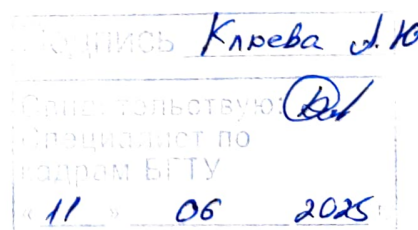 Подпись Клюева А.Ю
Свидетельствую:
Специалист по
кадрам БГТУ
« 11 » 06 2025 г